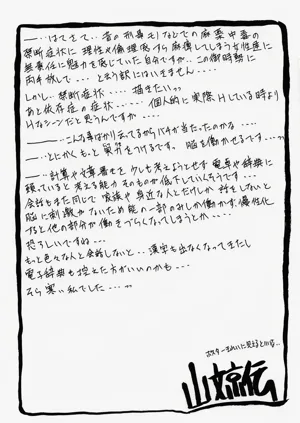 ――…はてさて.. 昔の刑事モノなどでの麻薬中毒の
禁断症状に理性や倫理感すら麻痺してしまう女性達に
無責任に魅力を感じていた自分ですが.. この御時勢に
両手放しで... と云う訳にはいきません....
しかし.. 禁断症状.... 描きたいっ
あと依存症の症状..... 個人的に実際Hしている時より
Hなシーンだと思うんですが....
―――…こんな事ばかり云ってるからバチが当たったのかな....
―…とにかくもっと気分をつける. 脳を働かせるです...っ
―…計算や仕事等を少しも考えようとせず電卓や辞典に
頼っていると考える能力そのものが低下していくそうです...
会話もまた同じで家族や身近な人とだけしか話をしないと
脳に刺激がないため脳の一部のみしか働かず. 慢性化
すると他の部分が働きづらくなってしまうとか....
恐ろしいですね...
もっと色々な人と会話しないと.. 漢字も出なくなってきたし
電子辞典も控えた方がいいのかも...
そら寒い私でした....っ
ポスターきれいに見えるといいな...
山京伝